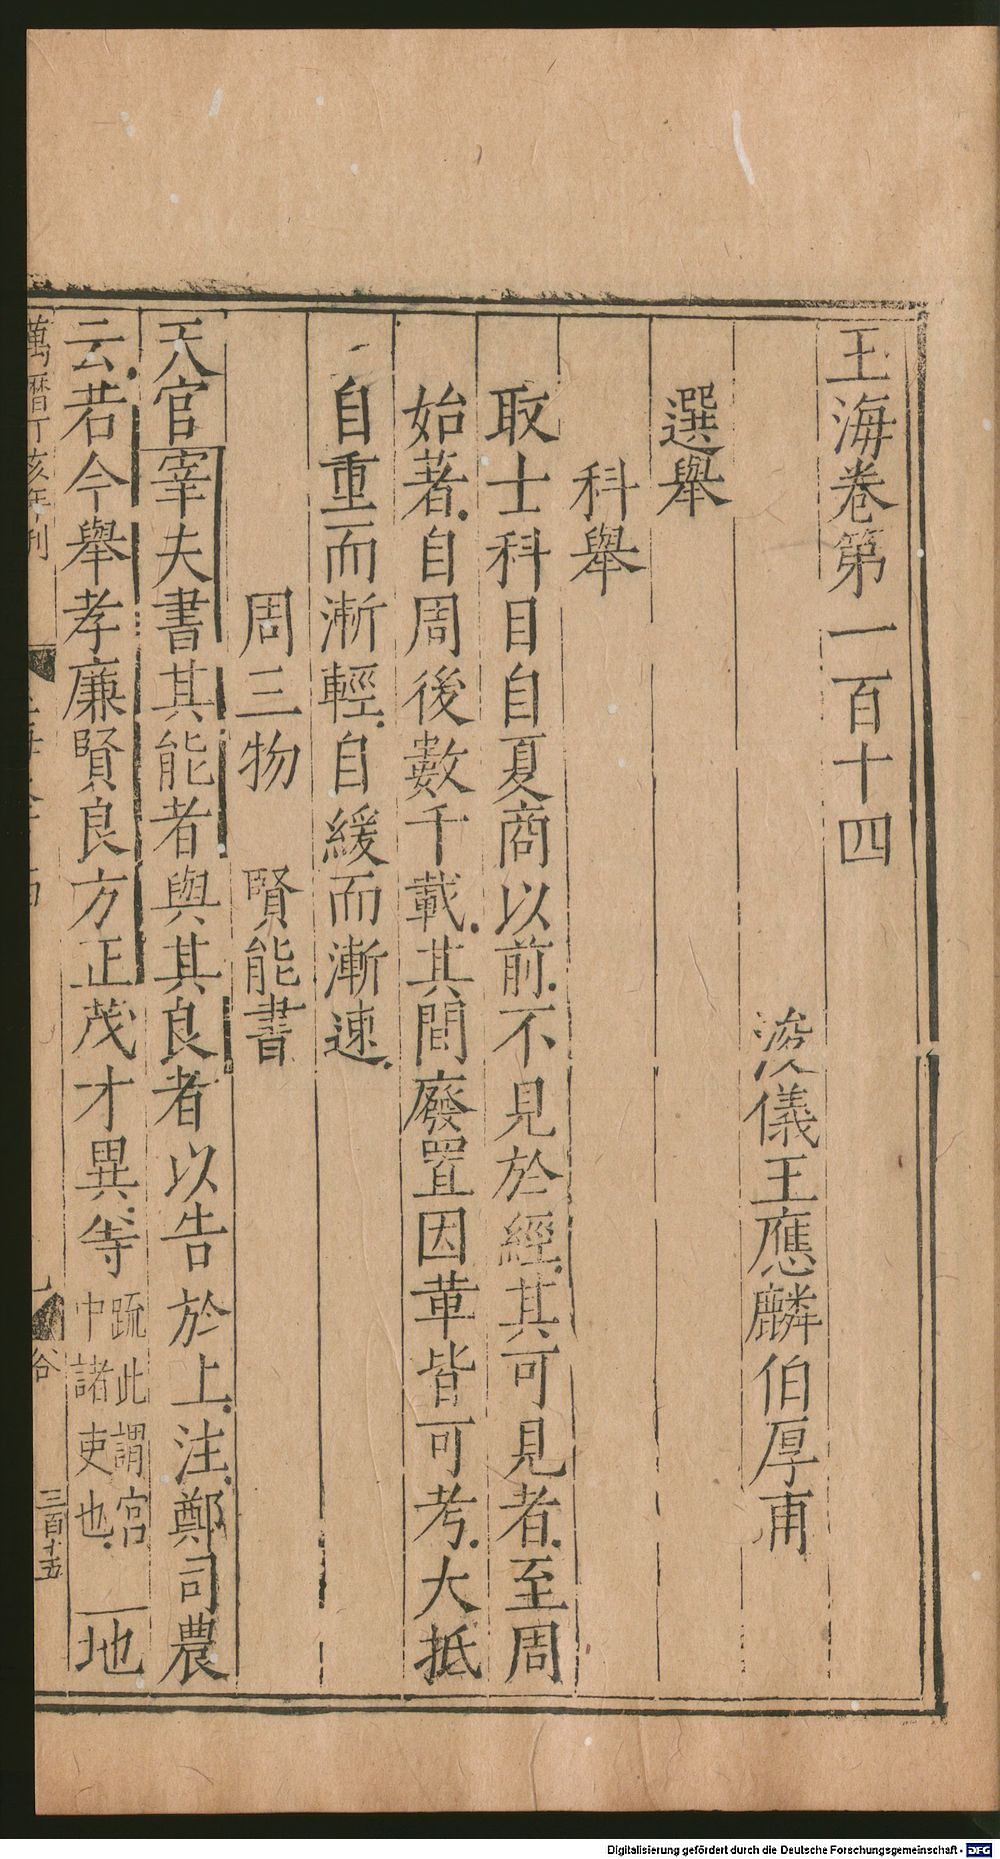 玉海卷第一百十四
浚儀王應麟伯厚甫
選舉
科舉
取士科目自夏商以前不見於經其可見者至周
始著自周後數千載其間廢置因革皆可考大抵
自重而漸輕自緩而漸速
周三物 賢能書
天官宰夫書其能者與其良者以告於上注鄭司農
云若今舉孝廉賢良方正茂才異等
疏此謂官
中諸吏也
地
萬曆丁亥年刊
三百十五
Digitalisierung gefördert durch die Deutsche Forschungsgemeinschaft - DFG